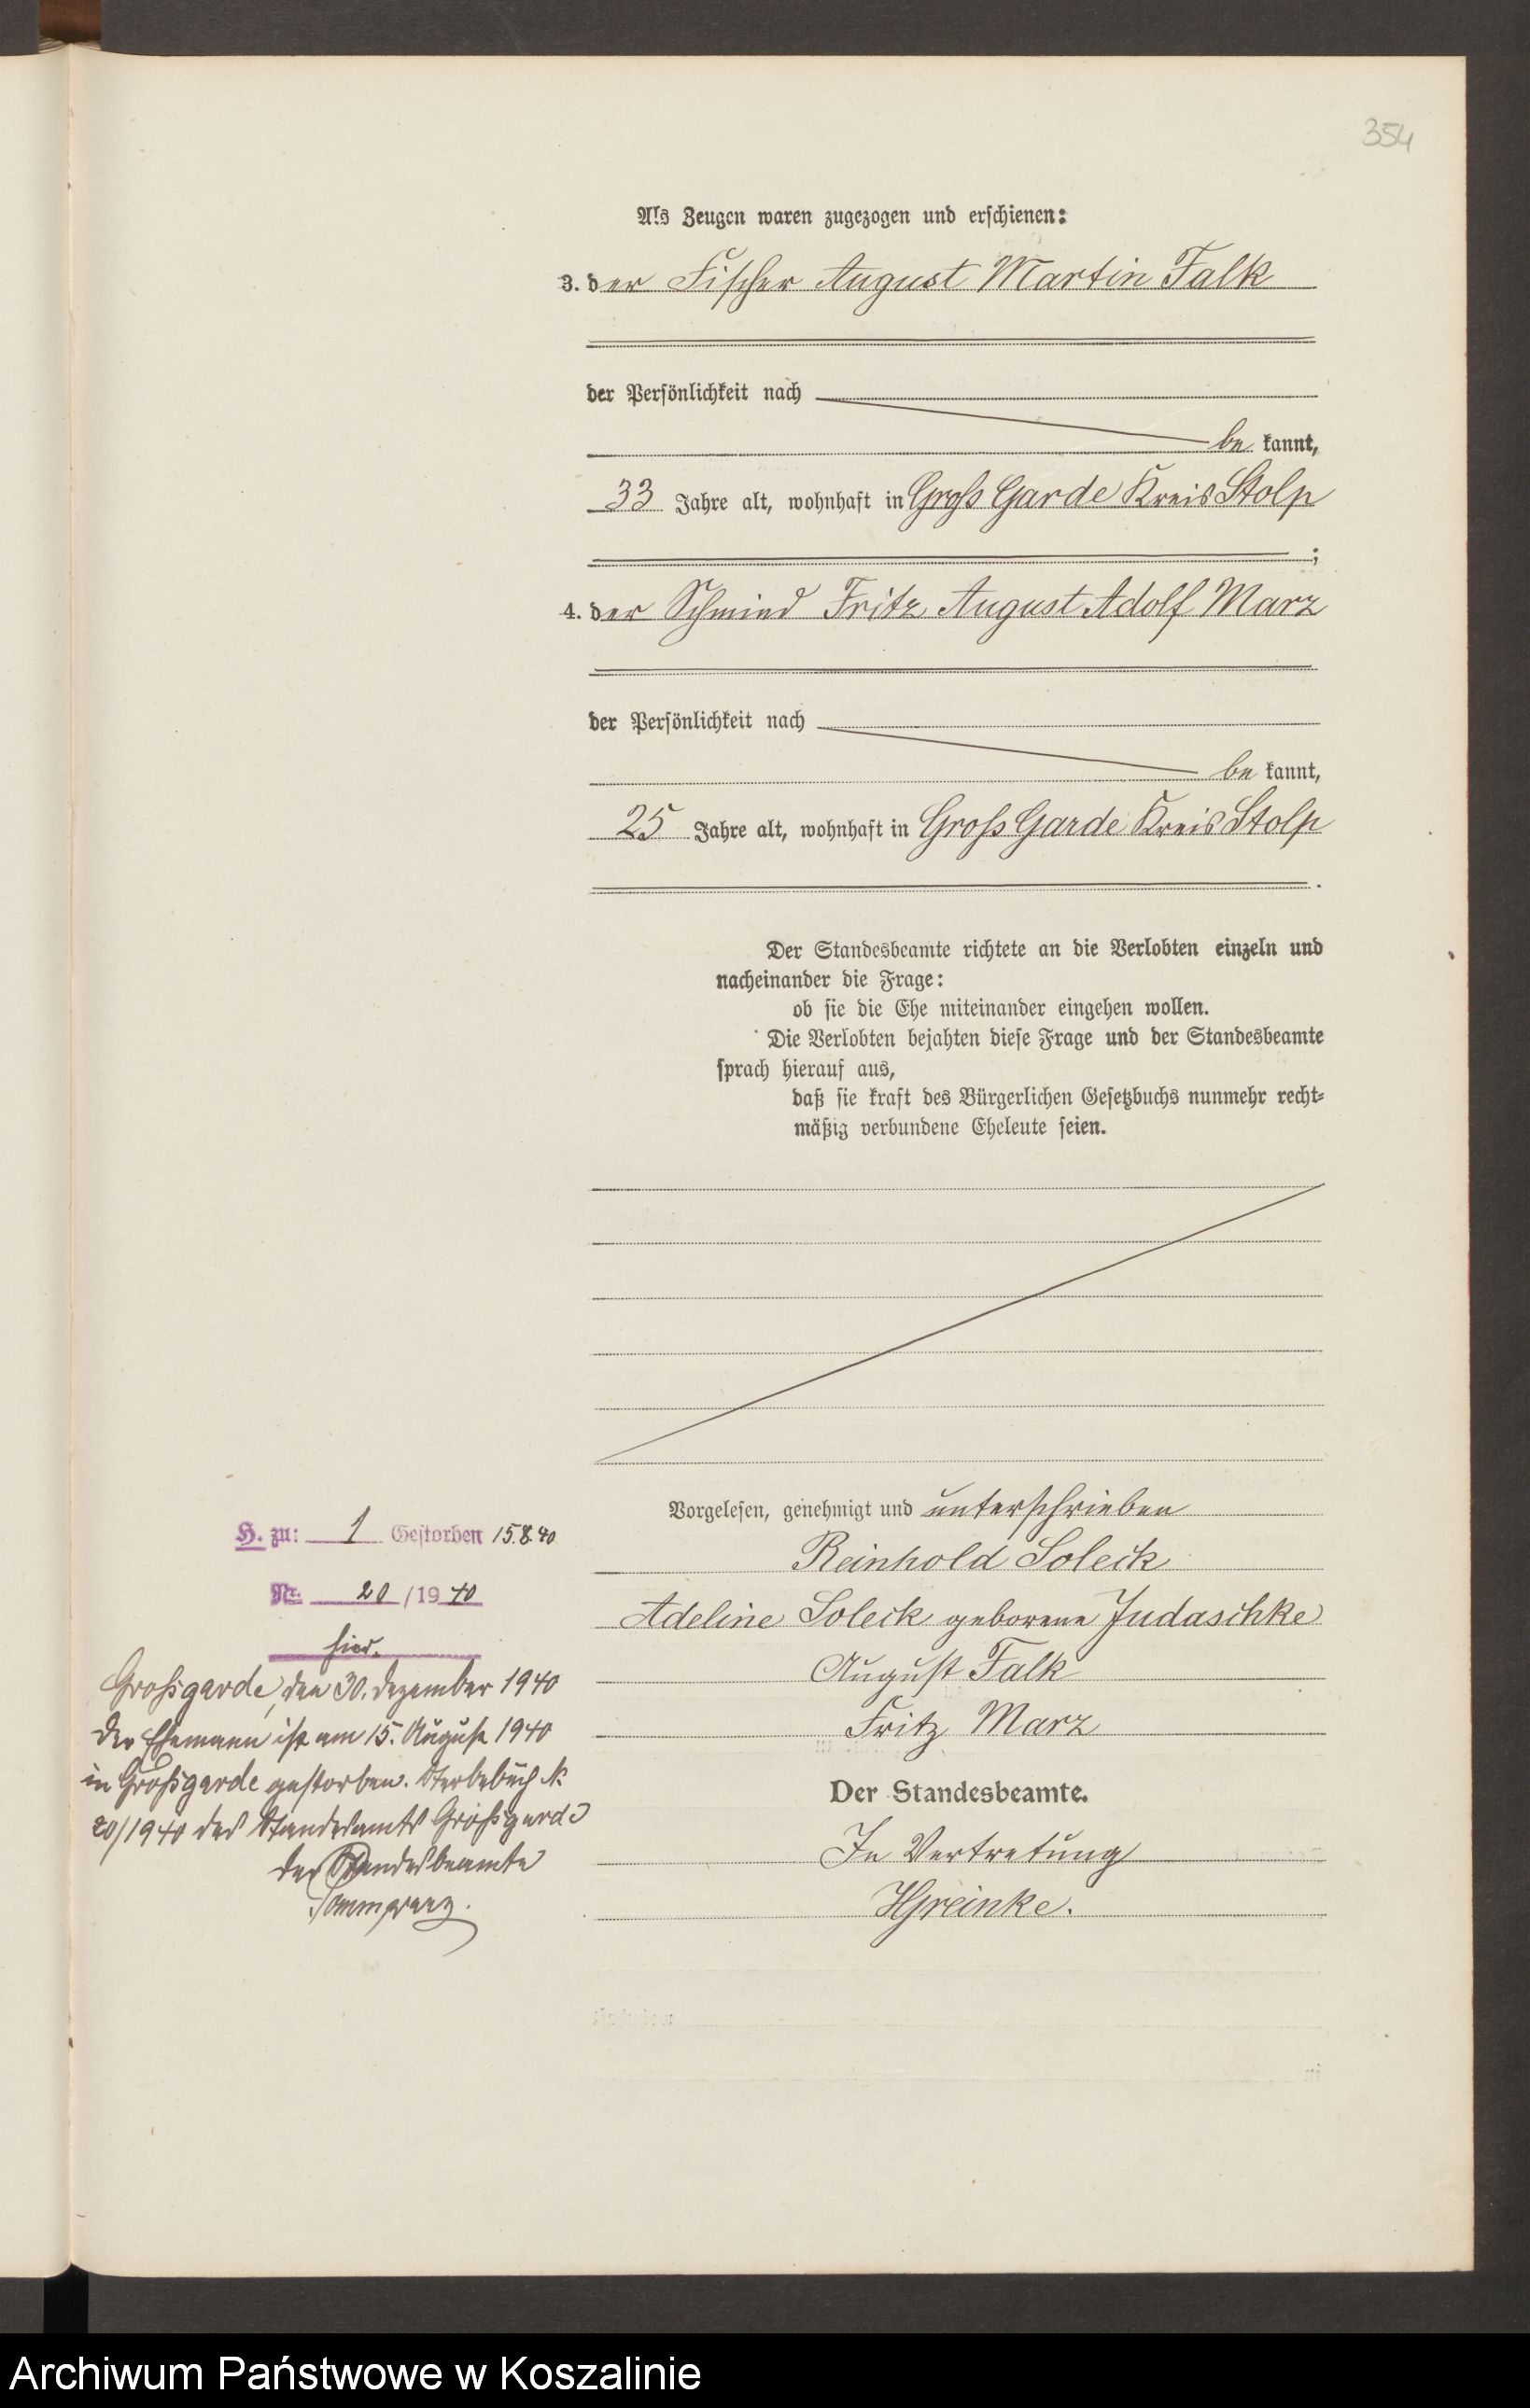 354
Als Zeugen waren zugezogen und erschienen:
3. der Fischer August Martin Falk
der Persönlichkeit nach
be kannt,
33 Jahre alt, wohnhaft in Gross Garde Kreis Stolp
;
4. der Schmied Fritz August Adolf Marz
der Persönlichkeit nach
be kannt,
25 Jahre alt, wohnhaft in Gross Garde Kreis Stolp
.
Der Standesbeamte richtete an die Verlobten einzeln und
nacheinander die Frage:
ob sie die Ehe miteinander eingehen wollen.
Die Verlobten bejahten diese Frage und der Standesbeamte
sprach hierauf aus,
daß sie kraft des Bürgerlichen Gesetzbuchs nunmehr recht-
mäßig verbundene Eheleute seien.
Vorgelesen, genehmigt und unterschrieben
Reinhold Soleck
Adeline Soleck geborene Judaschke
August Falk
Fritz Marz
Der Standesbeamte.
In Vertretung
HGreinke.
H. zu: 1 Gestorben 15.8.40
Nr. 20/1940
hier.
Grossgarde, den 30. Dezember 1940
Der Ehemann ist am 15. August 1940
in Grossgarde gestorben. Sterbebuch N.
20/1940 des Standesamts Grossgarde
Der Standesbeamte
Archiwum Państwowe w Koszalinie